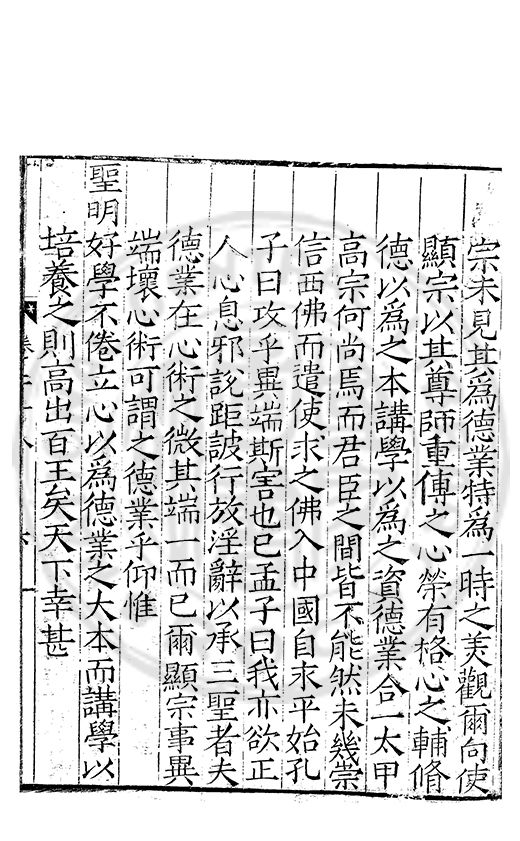 宗未見其為德業特為一時之美觀爾向使
顯宗以其尊師重傅之心榮有格心之輔脩
德以為之本講學以為之資德業合一太甲
高宗何尚焉而君臣之間皆不能然未幾崇
信西佛而遣使求之佛入中國自永平始孔
子曰攻乎異端斯害也已孟子曰我亦欲正
人心息邪說距詖行放淫辭以承三聖者夫
德業在心術之微其端一而已爾顯宗事異
端壞心術可謂之德業乎仰惟
聖明好學不倦立心以為德業之大本而講學以
培養之則高出百王矣天下幸甚